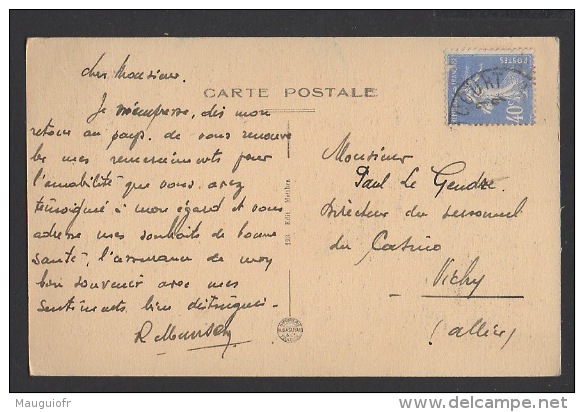 cher Monsieur.
CARTE POSTALE
Je m'empresse, dès mon
retour au pays. de vous renouve
les mes remerciements pour
l'amabilité que vous avez
témoigné à mon égard et vous
adresse mes souhaits de bonne
santé, l'assurance de mon
bon souvenir avec mes
sentiments bien distingués.
POSTES
40c
Monsieur
Paul Le Gendre
Directeur du personnel
du Casino
Vichy
(allier)
Edit.
Mauguiofr
www.delcampe.net